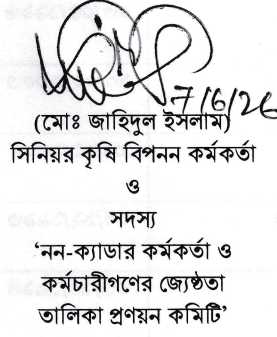 7/6/26
(মোঃ জাহিদুল ইসলাম)
সিনিয়র কৃষি বিপনন কর্মকর্তা
ও
সদস্য
‘নন-ক্যাডার কর্মকর্তা ও
কর্মচারীগণের জ্যেষ্ঠতা
তালিকা প্রণয়ন কমিটি’